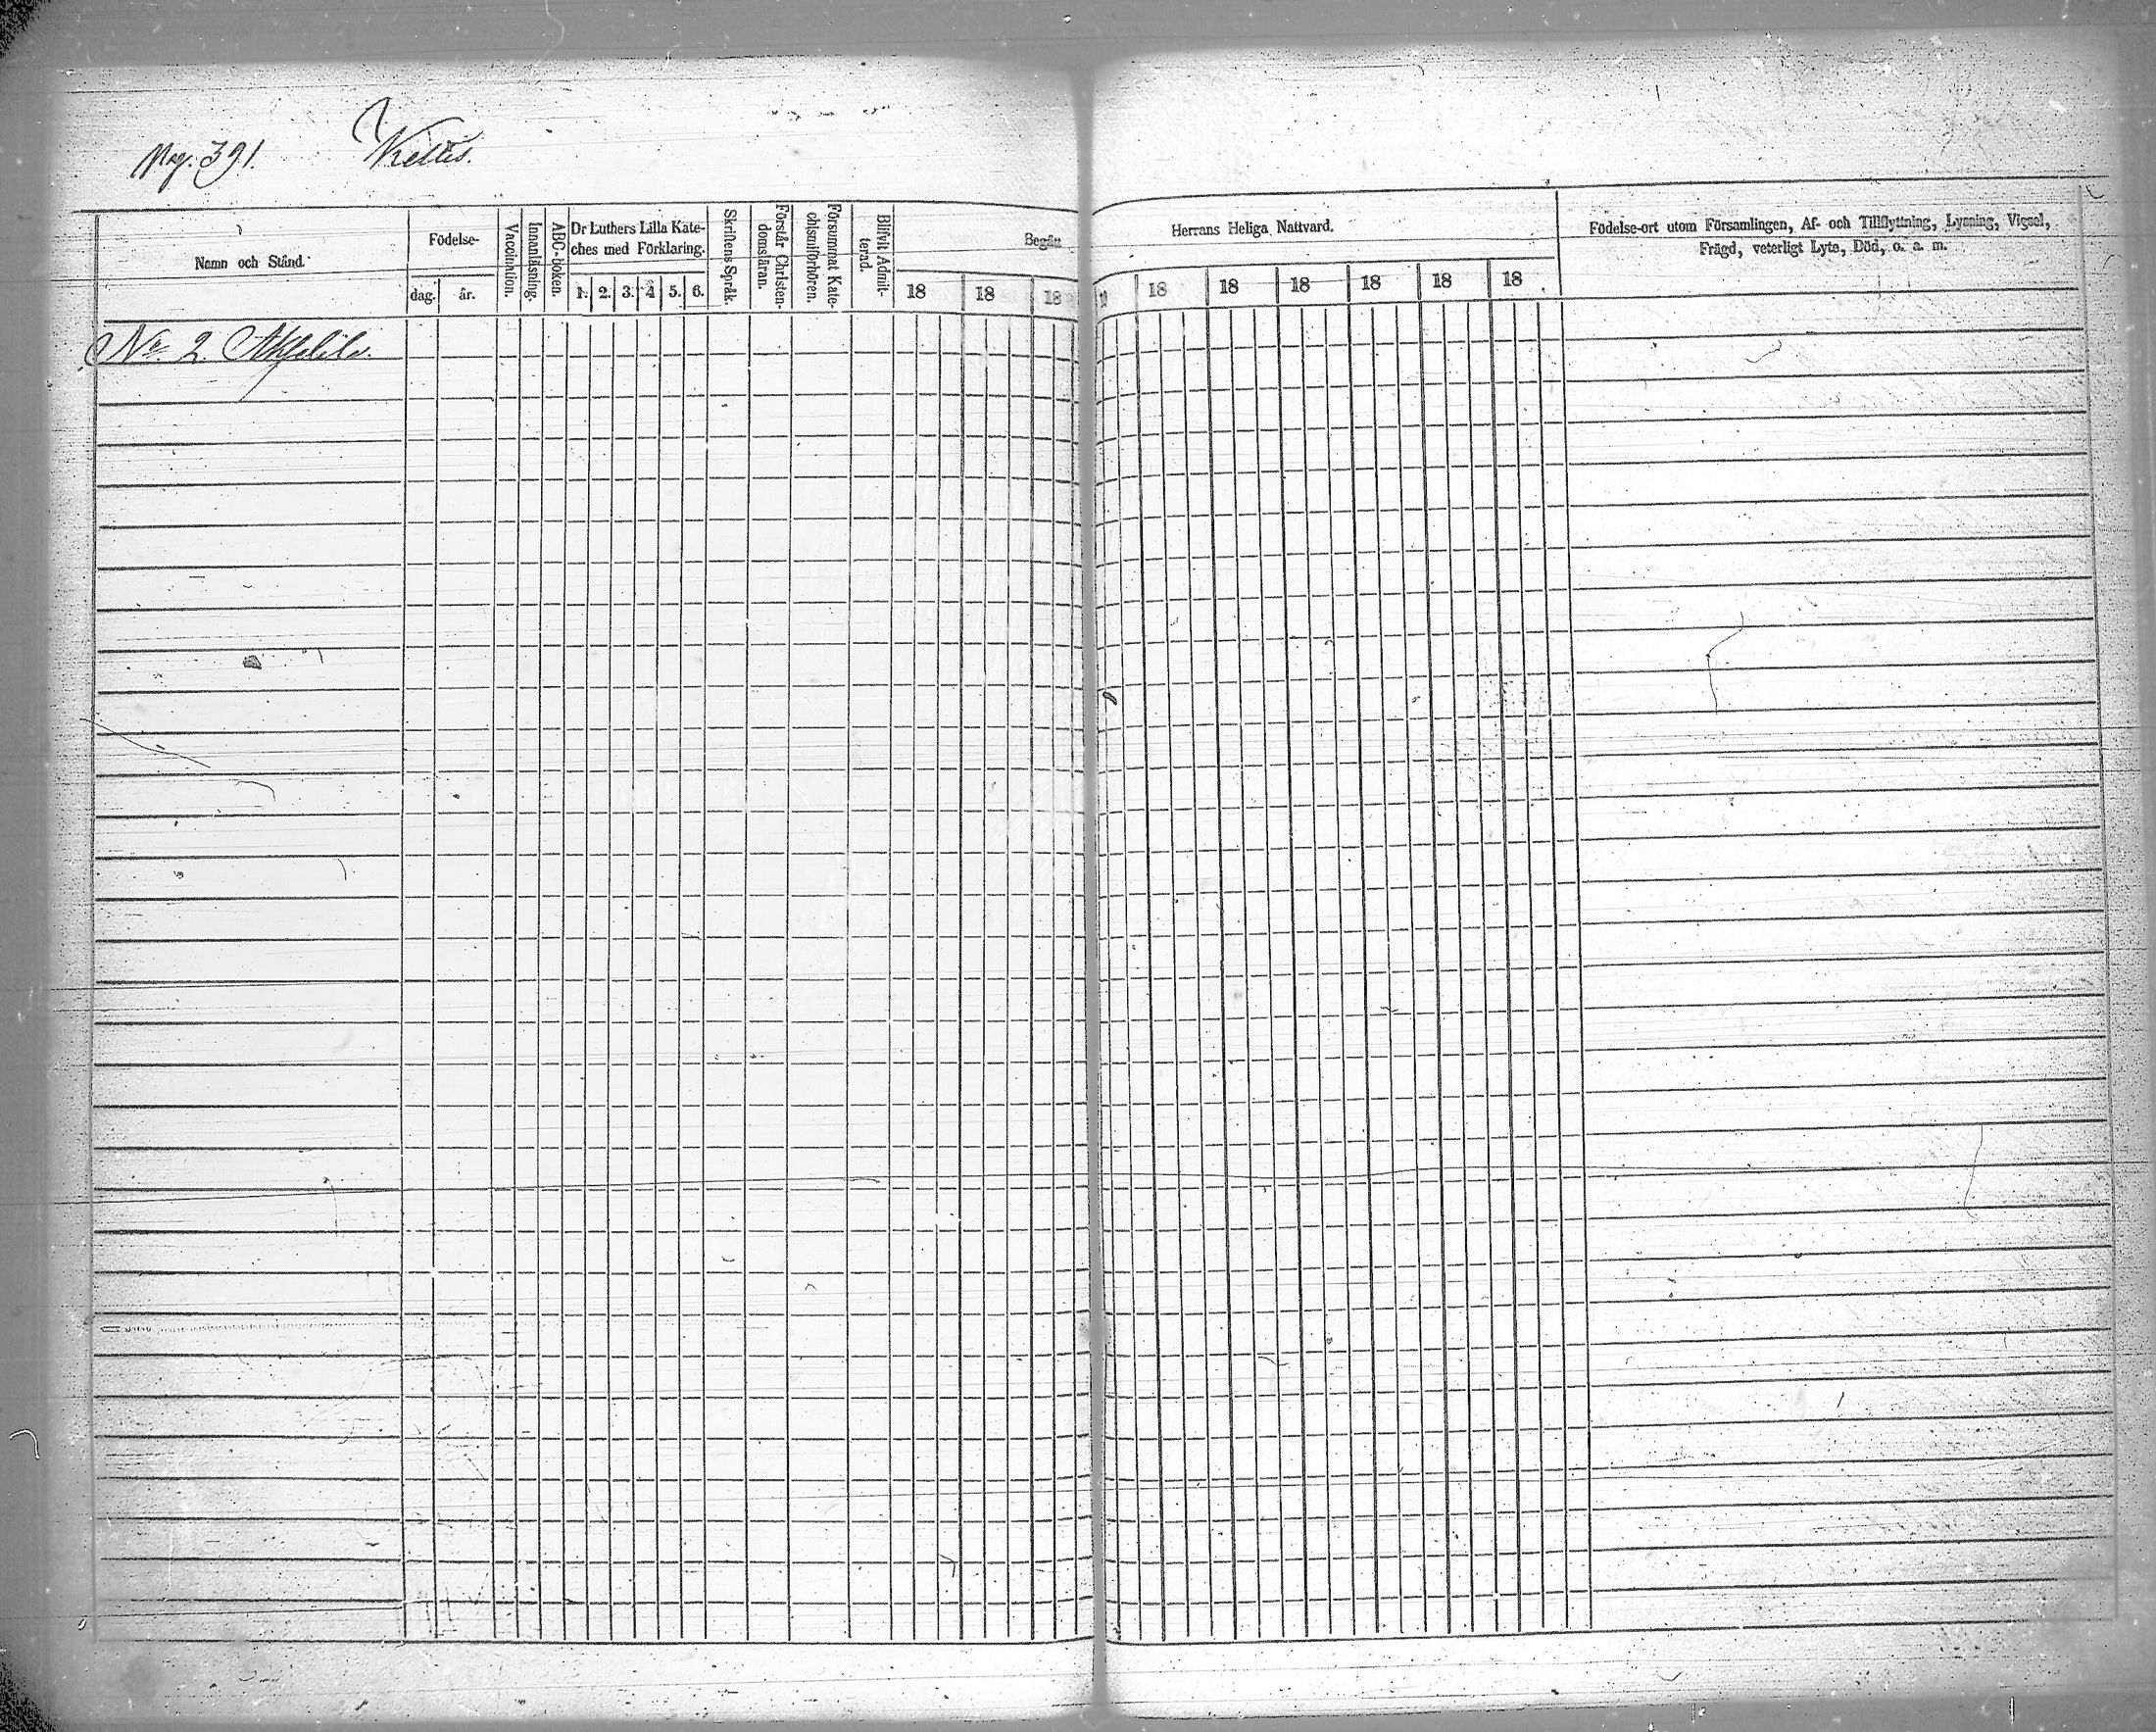 Pag. 391.
Namn och Stånd.
Födelse-
dag.
år.
Vaccination.
Innanläsning.
ABC-boken.
Dr Luthers Lilla Kate-
ches med Förklaring.
1. 2. 3. 4 5. 6.
Skriftens Språk.
Förstår Christen-
domsläran.
Försummat Kate-
chismiförhören.
Blifvit Admit-
terad.
Begått Herrans Heliga Nattvard.
18 18 18 18 18 18 18 18 18
Födelse-ort utom Församlingen, Af- och Tillflyttning, Lysning, Vigsel,
Frägd, veterligt Lyte, Död, o. a. m.
No 2.